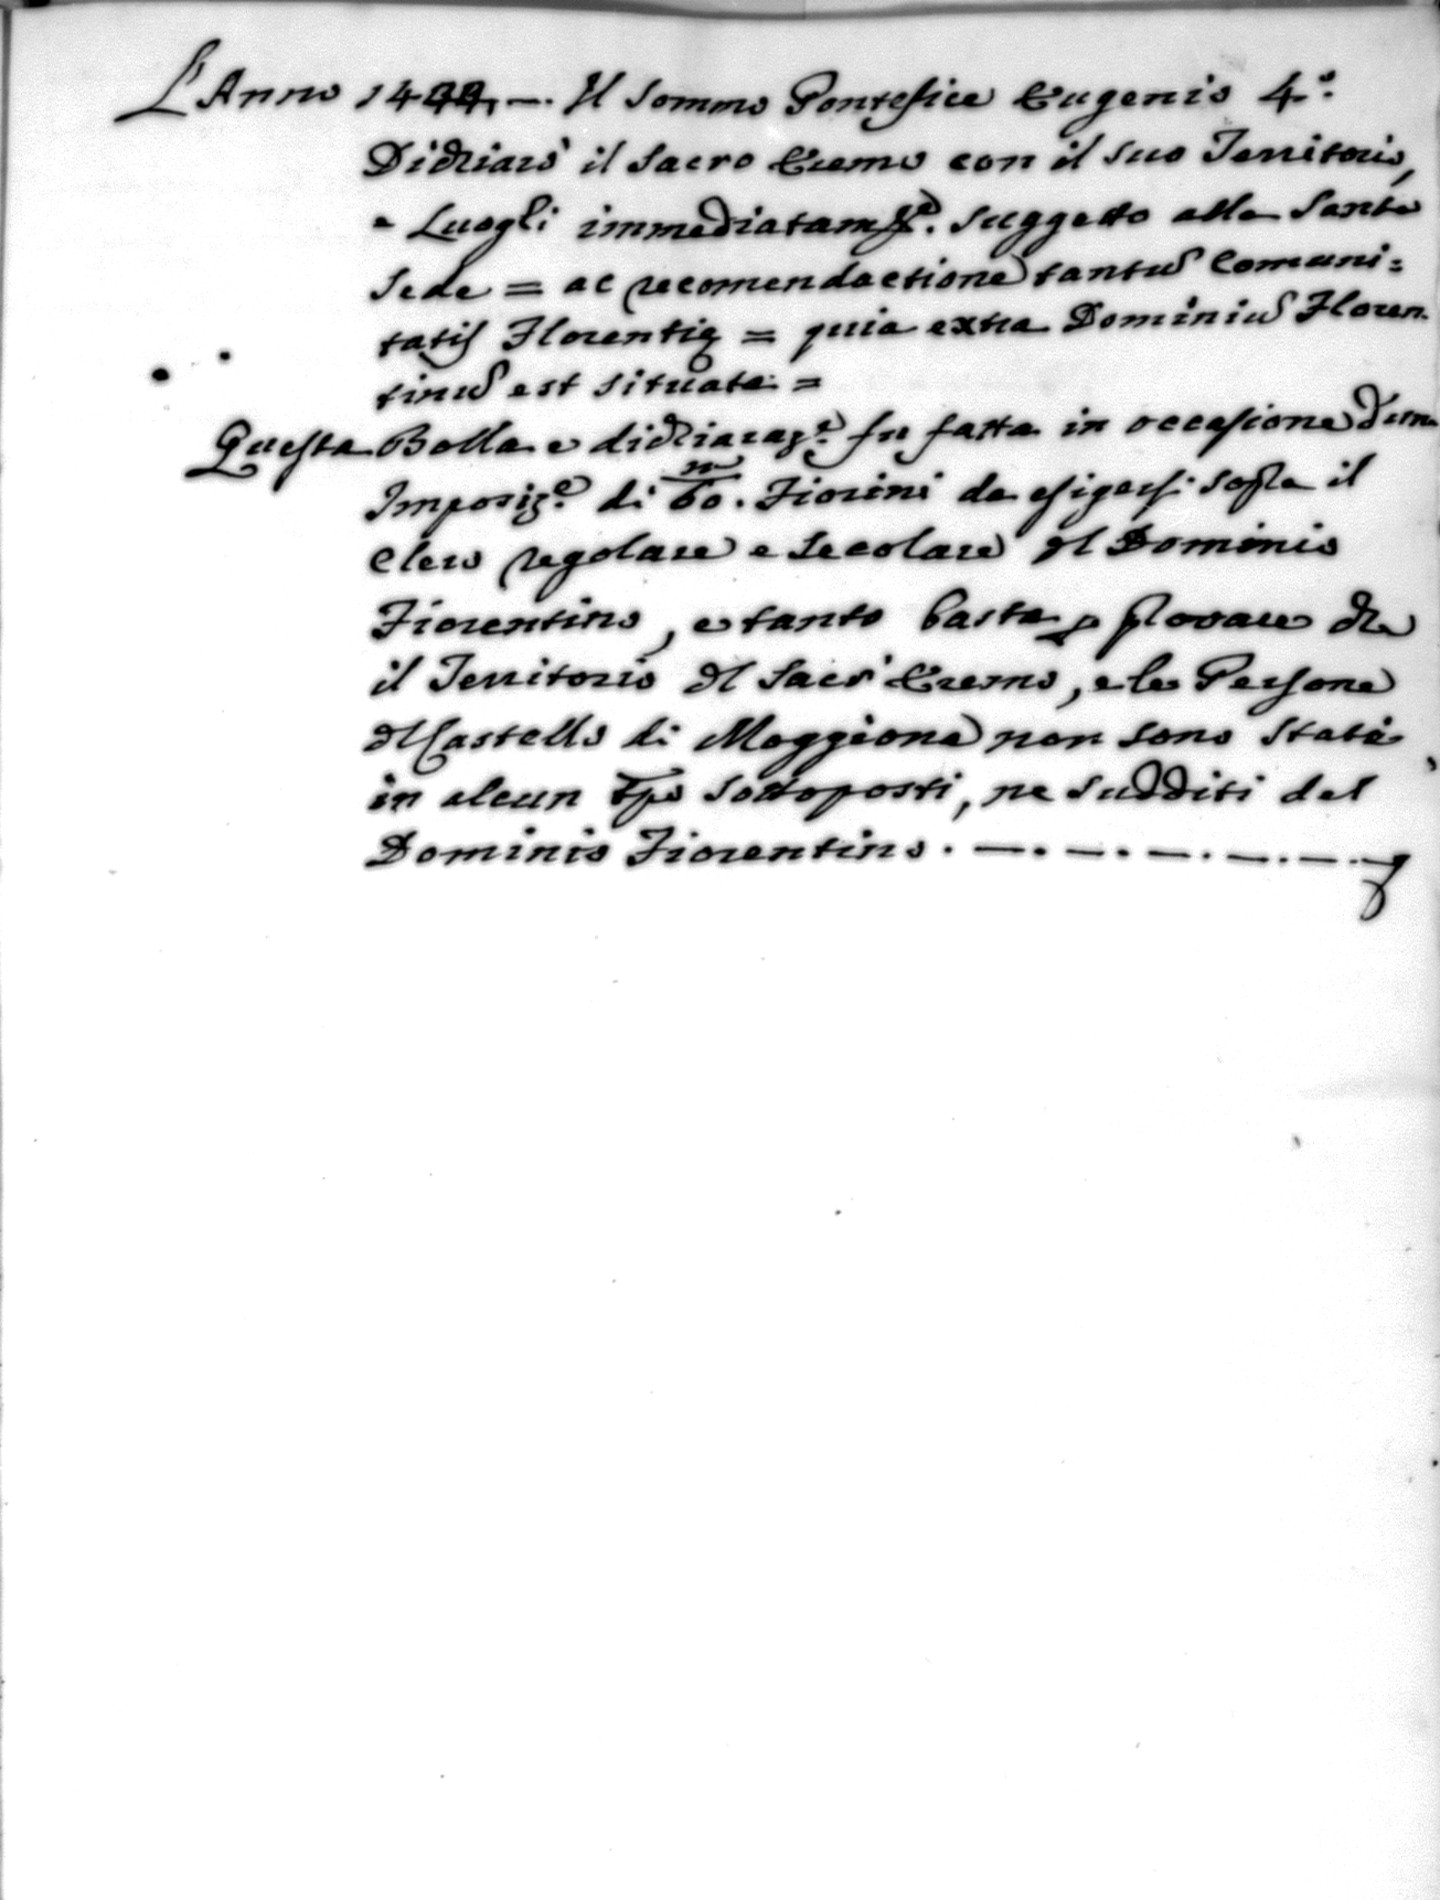 L'Anno 1444. — Il Sommo Pontefice Eugenio 4.º
Dichiarò il Sacro Eremo con il suo Territorio,
e Luoghi immediatam.te suggetto alla Santa
Sede = ac recomendactione tantu͂ Comuni=
tatis Florentię = quia extra Dominiu͂ Floren
tinu͂ est situata =
Questa Bolla e dichiaraz.e fu fatta in occasione d'un
Imposiz.e di 60. Fiorini da esigersi sopra il
Clero regolare e Secolare del Dominio
Fiorentino, e tanto basta p provare che
il Territorio del Sacro Eremo, e le Persone
del Castello di Moggiona non sono stati
in alcun tpo sottoposti, ne sudditi del
Dominio Fiorentino. —. —. —. —. —.